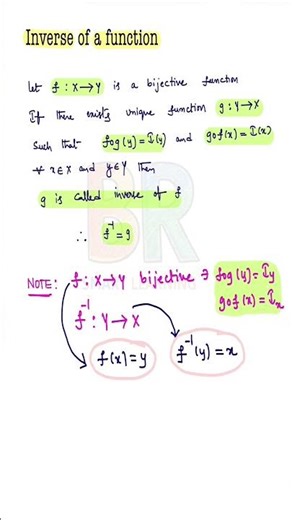 Inverse of a function
Let f : X→Y is a bijective function
If there exists unique function g : Y→X
Such that fog(y) = I(y) and gof(x) = I(x)
∀ x∈X and y∈Y then
g is called inverse of f
∴ f⁻¹ = g
NOTE: f : X→Y bijective ∋ fog(y) = Iy
gof(x) = Ix
f⁻¹ : Y→X
f(x) = y f⁻¹(y) = x
BR